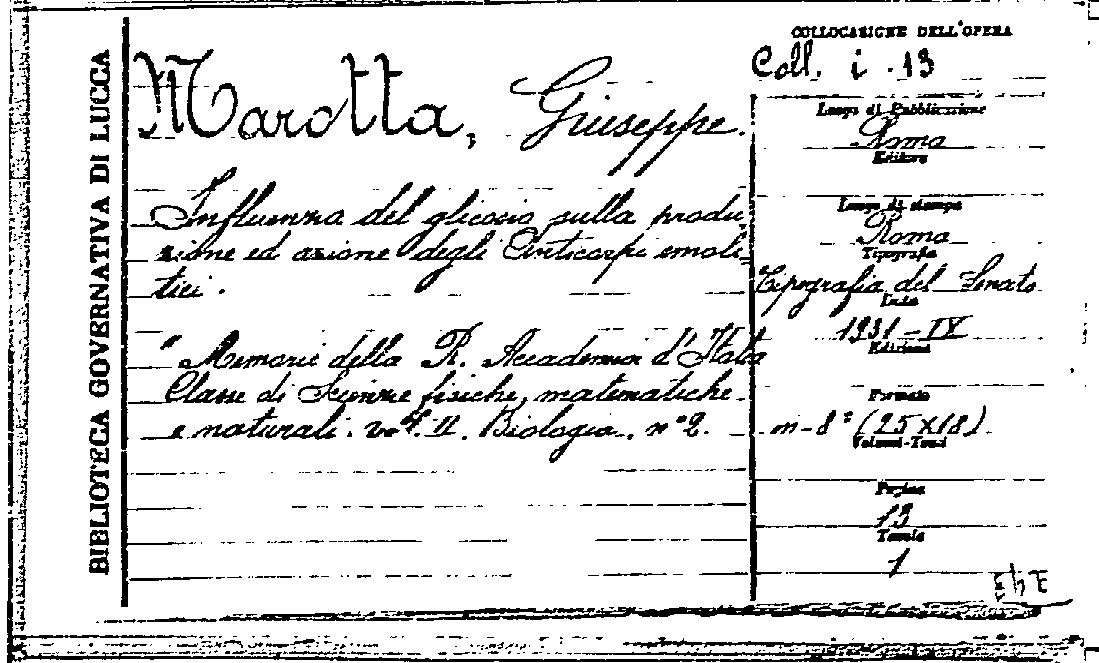 BIBLIOTECA GOVERNATIVA DI LUCCA
COLLOCAZIONE DELL'OPERA
Coll. i . 13
Marotta, Giuseppe.
Influenza del glicosio sulla produ,
zione ed azione degli Anticorpi emoli=
tici.
"Memorie della R. Accademia d'Italia
Classe di Scienze fisiche, matematiche
e naturali. vol. II. Biologia. n° 2.
Luogo di Pubblicazione
Roma
Editore
Luogo di stampa
Roma
Tipografia
Tipografia del Senato
Data
1931 - IX
Edizioni
Formato
in - 8° (25 x 18)
Volumi-Tomi
Pagine
13
Tavole
1